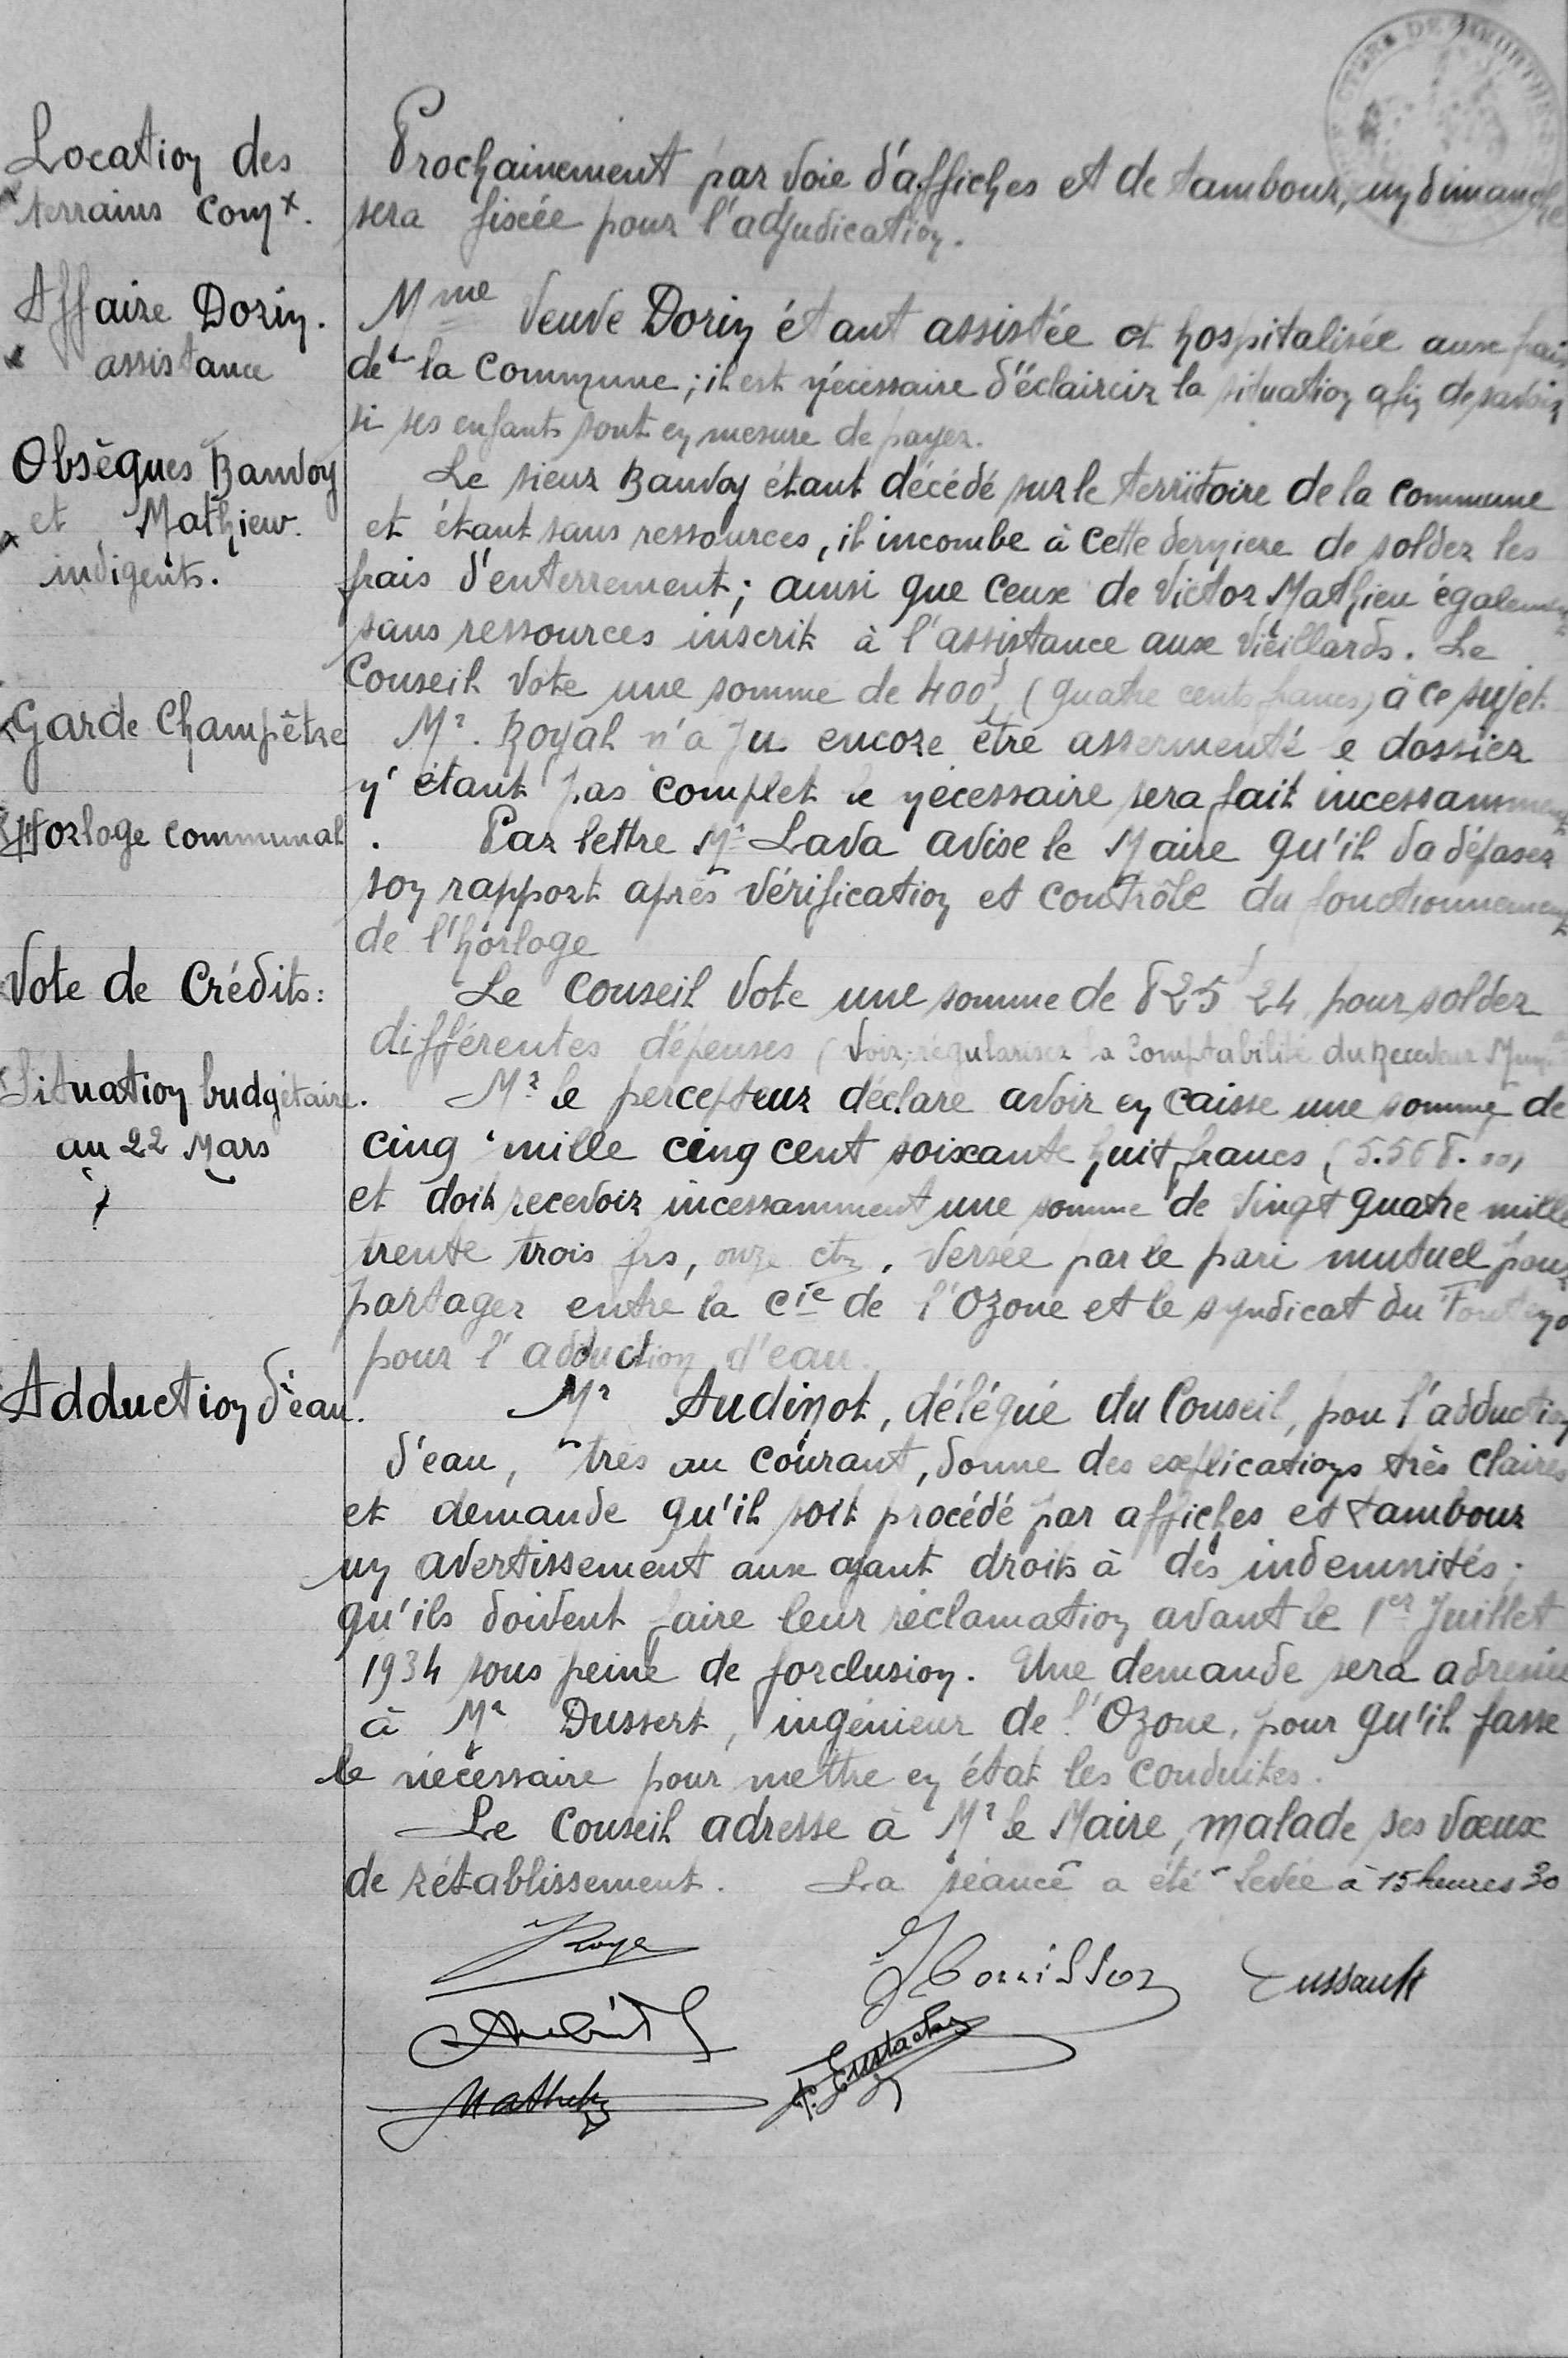 Location des
terrains comx.
Prochainement par voie d'affiches et de tambour, un dimanche
sera fixée pour l'adjudication.
Affaire Dorin.
assistance
Mme Veuve Dorin étant assistée et hospitalisée aux frais
de la Commune; il est nécessaire d'éclaircir la situation afin de savoir
si ses enfants sont en mesure de payer.
Obsèques Banvoy
et Mathieu.
indigents.
Le sieur Banvoy étant décédé sur le territoire de la commune
et étant sans ressources, il incombe à cette dernière de solder les
frais d'enterrement; ainsi que ceux de Victor Mathieu également
sans ressources inscrit à l'assistance aux vieillards. Le
Conseil vote une somme de 400f (quatre cents francs) à ce sujet.
Garde Champêtre
Mr. Royal n'a pu encore être assermenté le dossier
n'étant pas complet le nécessaire sera fait incessamment
Horloge communal
Par lettre Mr Lava avise le Maire qu'il va déposer
son rapport après vérification et contrôle du fonctionnement
de l'horloge
Vote de Crédits:
Le Conseil vote une somme de 825f 24 pour solder
différentes dépenses (voir, régulariser la Comptabilité du Receveur Mun.
Situation budgétaire.
au 22 Mars
Mr le percepteur déclare avoir en caisse une somme de
cinq mille cinq cent soixante huit francs (5.568.00)
et doit recevoir incessamment une somme de vingt quatre mille
trente trois frs, onze cts, versée par le pari mutuel pour
partager entre la Cie de l'Ozone et le syndicat du
pour l'adduction d'eau.
Adduction d'eau.
Mr Audinot, délégué du Conseil, pou l'adduction
d'eau, très au courant, donne des explications très claires
et demande qu'il soit procédé par affiches et tambour
un avertissement aux ayant droits à des indemnités;
qu'ils doivent faire leur réclamation avant le 1er Juillet
1934 sous peine de forclusion. Une demande sera adressée
à Mr Dussert, ingénieur de l'Ozone, pour qu'il fasse
le nécessaire pour mettre en état les conduites.
Le Conseil adresse à Mr le Maire, malade ses vœux
de rétablissement. La séance a été levée à 15 heures 30
P. Eustache